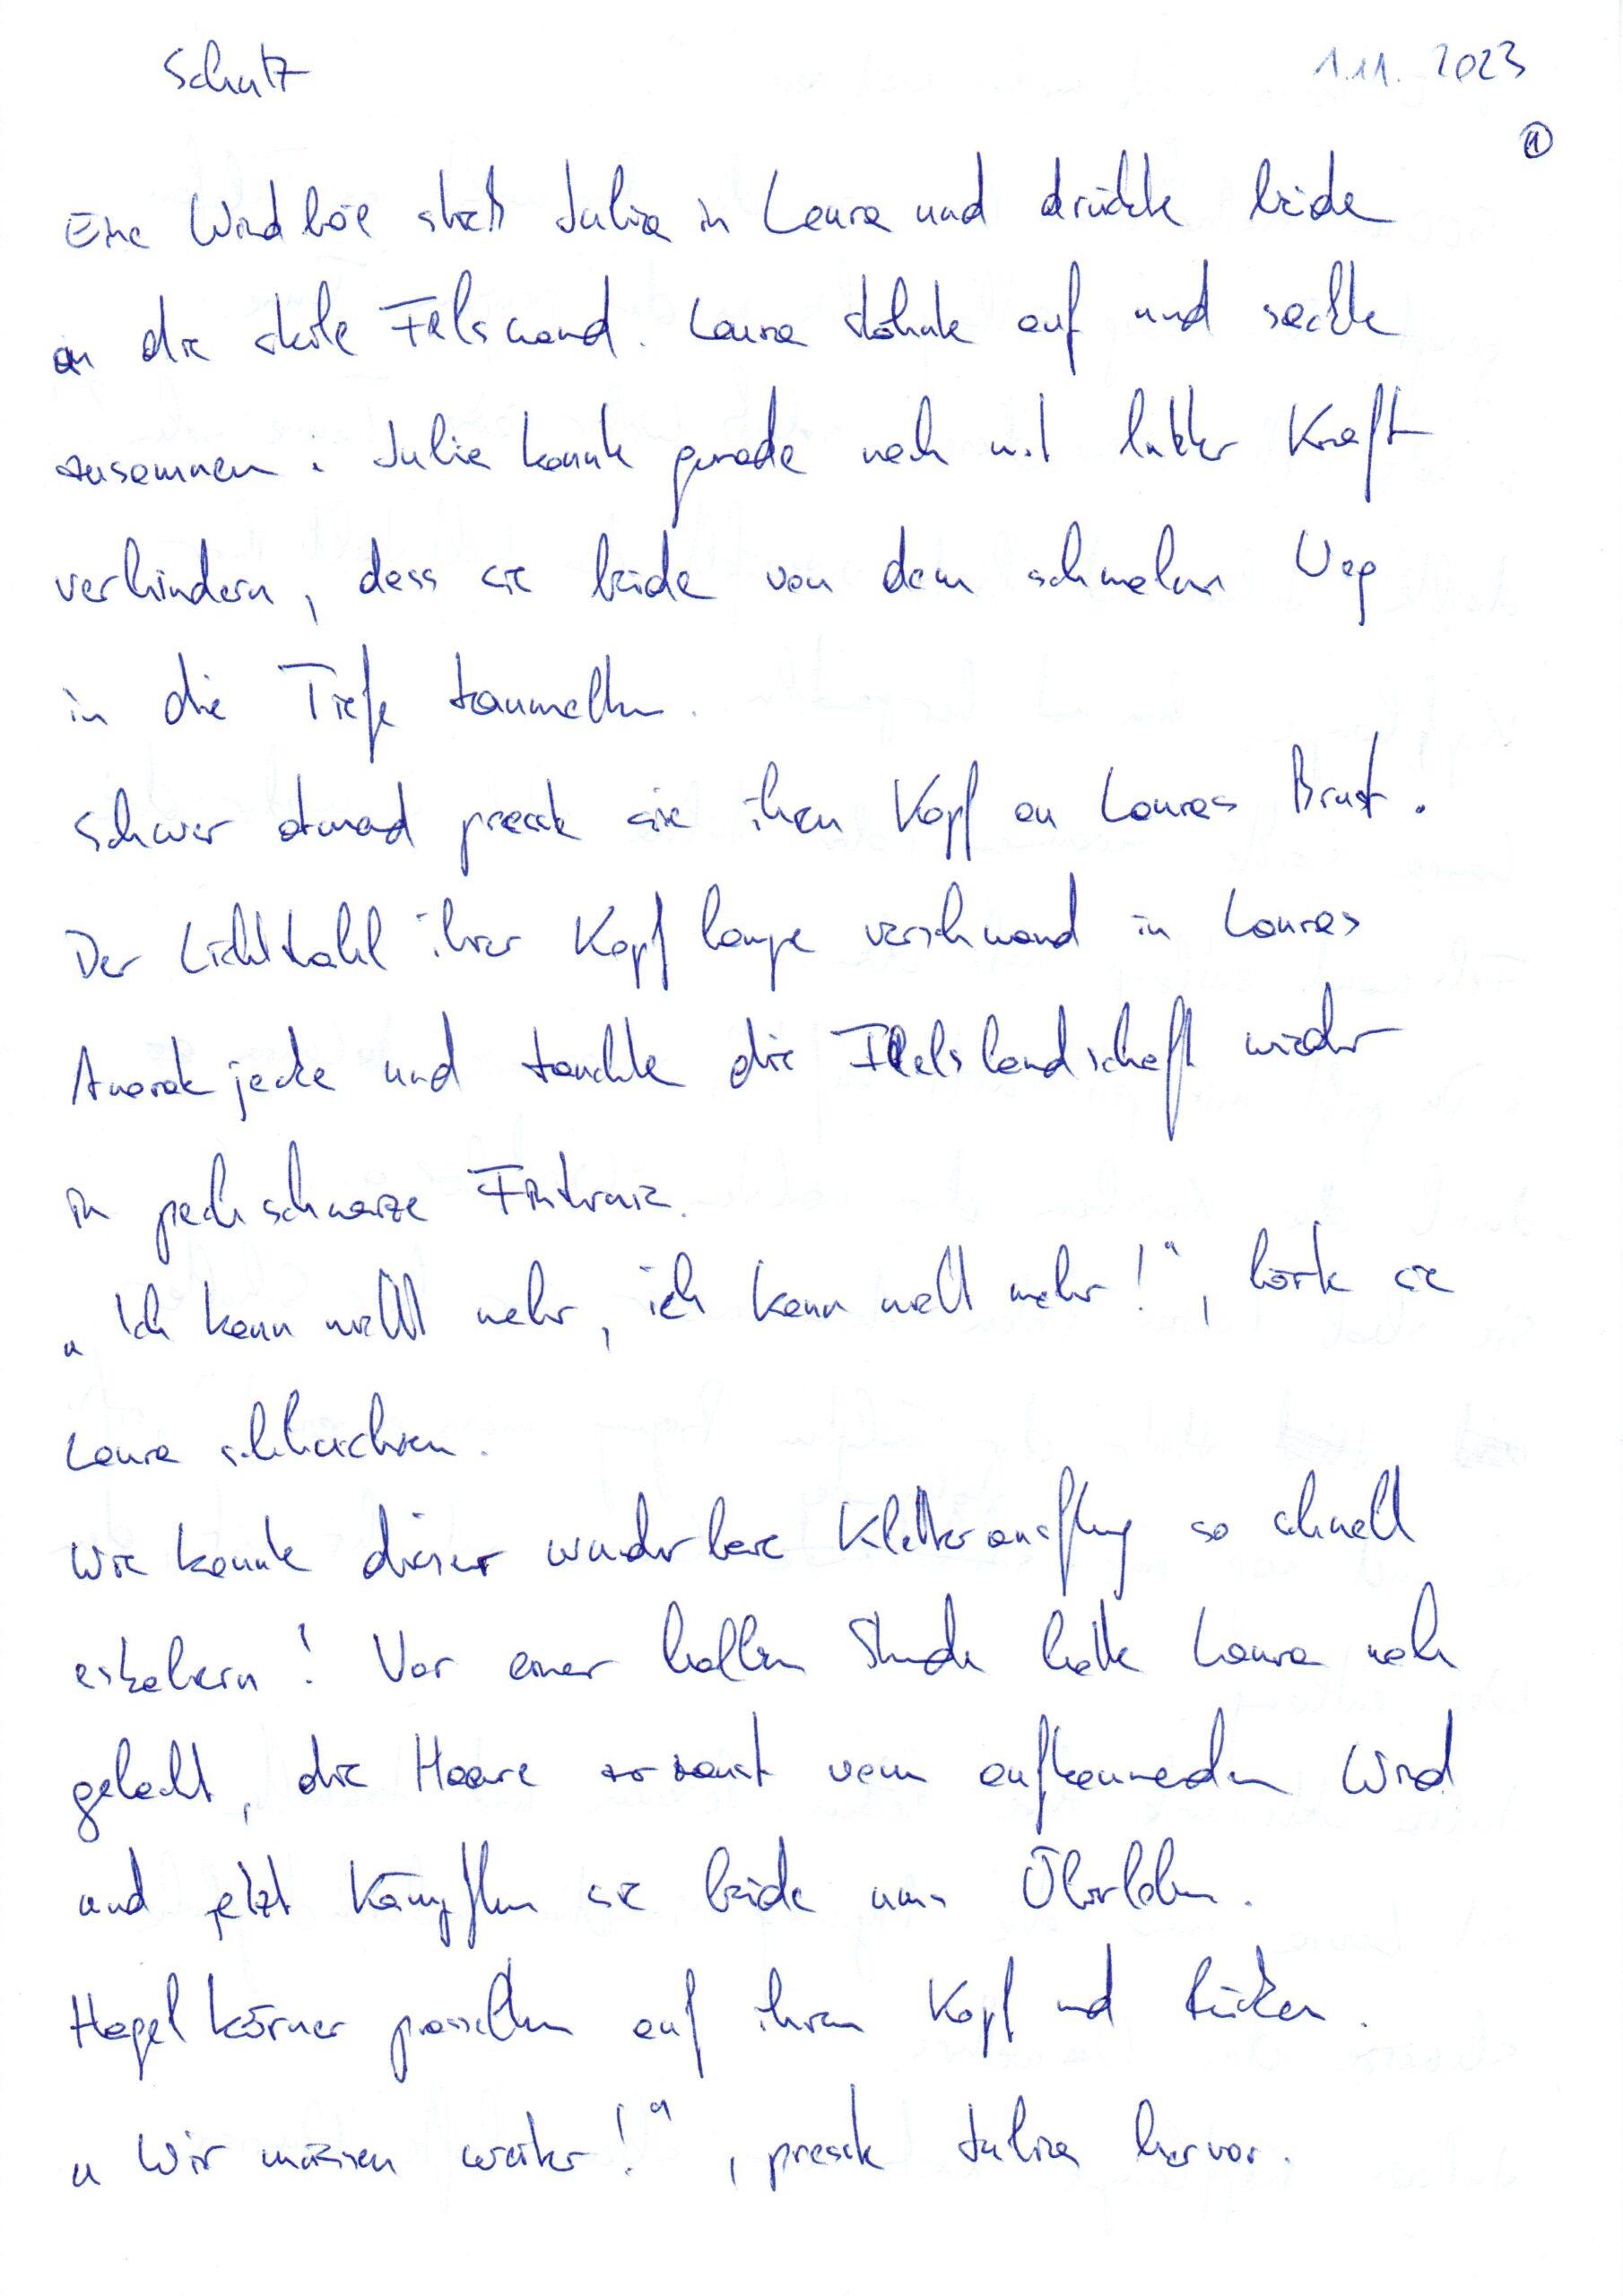 Schutz
1.11. 2023
1
Eine Windböe stieß Julia in Laura und drückte beide
an die steile Felswand. Laura stöhnte auf und sackte
zusammen. Julia konnte gerade noch mit letzter Kraft
verhindern, dass sie beide von dem schmalen Weg
in die Tiefe taumelten.
Schwer atmend presste sie ihren Kopf an Lauras Brust.
Der Lichtstrahl ihrer Kopflampe verschwand in Lauras
Anorakjacke und tauchte die Felslandschaft wieder
in pechschwarze Finsternis.
„Ich kann nicht mehr, ich kann nicht mehr!“, hörte sie
Laura schluchzen.
Wie konnte dieser wunderbare Kletterausflug so schnell
eskalieren! Vor einer halben Stunde hatte Laura noch
gelacht, die Haare zerzaust vom aufkommenden Wind
und jetzt kämpften sie beide ums Überleben.
Hagelkörner prasselten auf ihren Kopf und Rücken.
„Wir müssen weiter!“, presste Julia hervor.